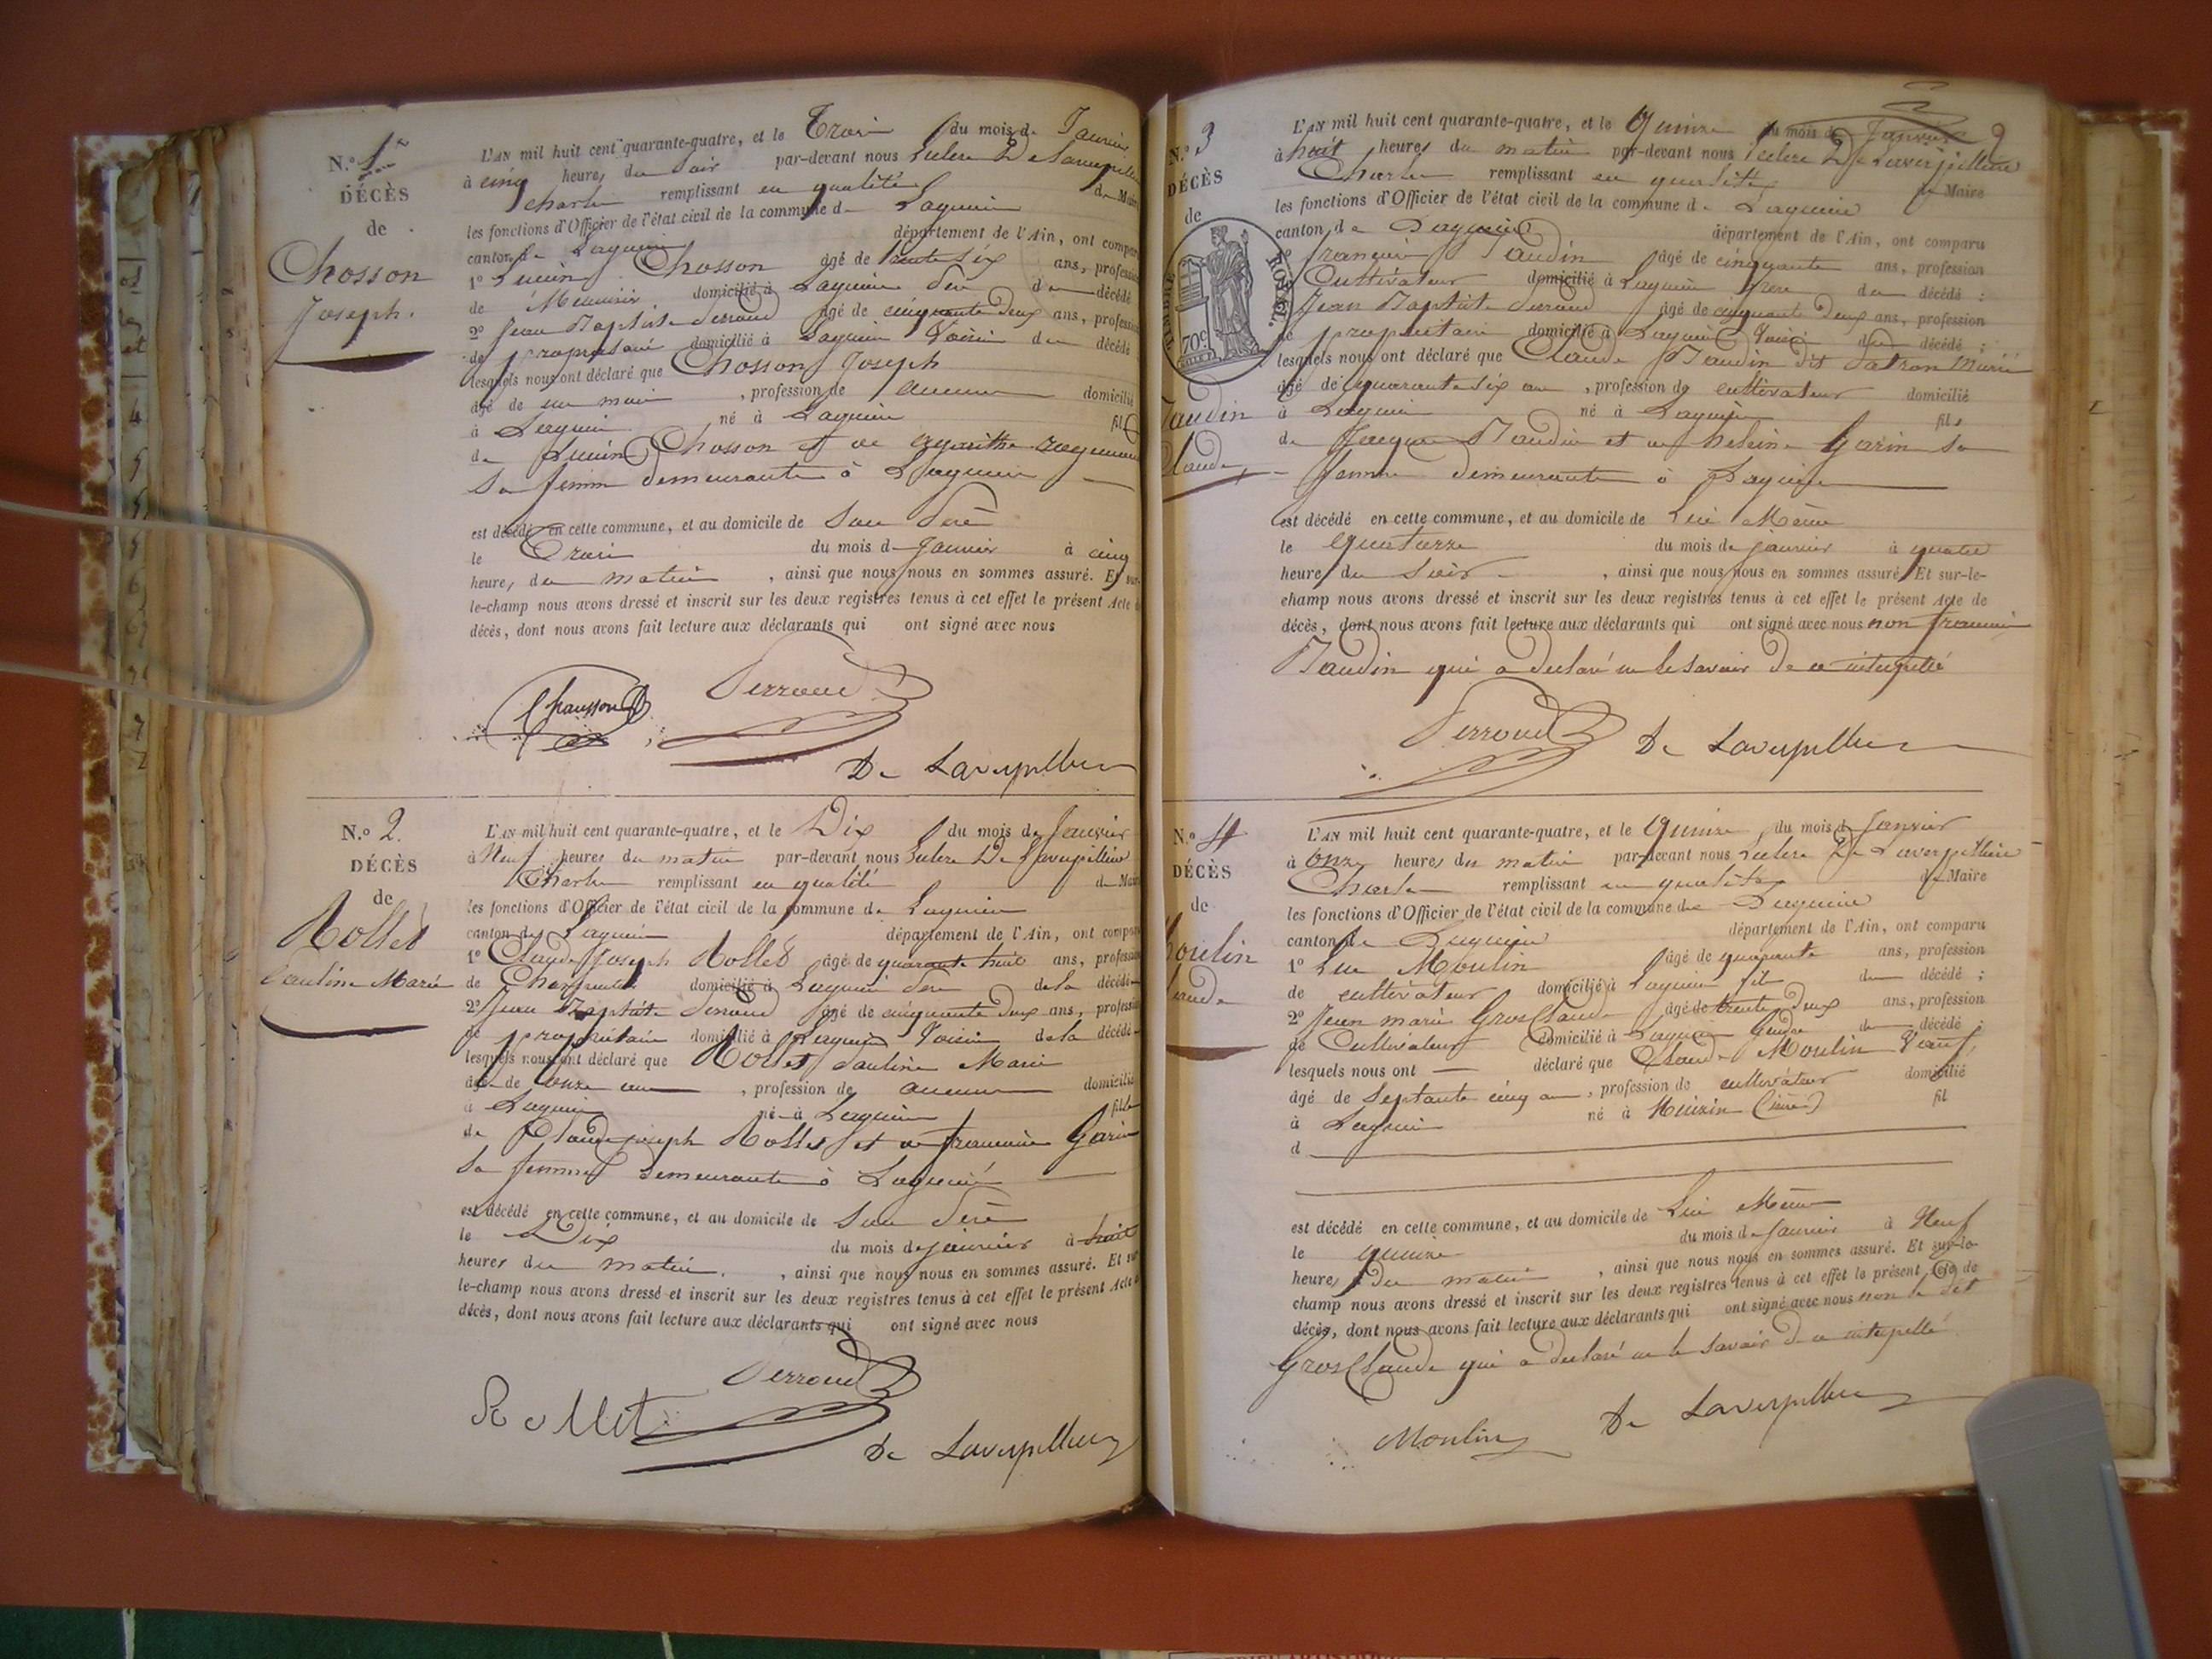 N.o 1er
DÉCÈS
de
Chosson
Joseph.
L'AN mil huit cent quarante-quatre, et le Trois du mois de Janvier
à cinq heures du soir par-devant nous
Charles remplissant en qualité de Maire
les fonctions d'Officier de l'état civil de la commune de Lagnieu
canton de Lagnieu département de l'Ain, ont comparu
1o Lucien Chosson âgé de trente six ans, profession
de Menuisier domicilié à Lagnieu père du décédé
2o Jean Baptiste Perroud âgé de cinquante deux ans, profession
de propriétaire domicilié à Lagnieu Voisin du décédé
lesquels nous ont déclaré que Chosson Joseph
âgé de un mois, profession de aucune domicilié
à Lagnieu né à Lagnieu fils
de Lucien Chosson et de
sa femme demeurante à Lagnieu
est décédé en cette commune, et au domicile de Son Père
le Trois du mois de Janvier à cinq
heures du matin, ainsi que nous nous en sommes assuré. Et sur-
le-champ nous avons dressé et inscrit sur les deux registres tenus à cet effet le présent Acte de
décès, dont nous avons fait lecture aux déclarants qui ont signé avec nous
Chausson Perroud
De Laverpillière
N.o 2.
DÉCÈS
de
Rollet
Pauline Marie
L'AN mil huit cent quarante-quatre, et le Dix du mois de Janvier
à Neuf heures du matin par-devant nous Leclerc De Laverpillière
Charles remplissant en qualité de Maire
les fonctions d'Officier de l'état civil de la commune de Lagnieu
canton de Lagnieu département de l'Ain, ont comparu
1o Claude Joseph Rollet âgé de quarante huit ans, profession
de Charpentier domicilié à Lagnieu père de la décédée
2o Jean Baptiste Perroud âgé de cinquante deux ans, profession
de propriétaire domicilié à Lagnieu Voisin de la décédée
lesquels nous ont déclaré que Rollet Pauline Marie
âgée de onze ans, profession de aucune domicilié
à Lagnieu née à Lagnieu fille
de Claude Joseph Rollet et de Francoise Garin
sa femme demeurante à Lagnieu
est décédé en cette commune, et au domicile de Son Père
le Dix du mois de janvier à huit
heures du matin, ainsi que nous nous en sommes assuré. Et sur
le-champ nous avons dressé et inscrit sur les deux registres tenus à cet effet le présent Acte de
décès, dont nous avons fait lecture aux déclarants qui ont signé avec nous
Rollet Perroud
De Laverpillière
N.o 3
DÉCÈS
de
TIMBRE ROYAL
70c
Claude
L'AN mil huit cent quarante-quatre, et le Quinze du mois de Janvier
à huit heures du matin par-devant nous Leclerc De Laverpillière
Charles remplissant en qualité de Maire
les fonctions d'Officier de l'état civil de la commune de Lagnieu
canton de Lagnieu département de l'Ain, ont comparu
1o François Naudin âgé de cinquante ans, profession
Cultivateur domicilié à Lagnieu frère du décédé ;
Jean Baptiste Perroud âgé de cinquante deux ans, profession
de propriétaire domicilié à Lagnieu Voisin du décédé ;
lesquels nous ont déclaré que Claude Naudin dit Patron Marié
âgé de quarante six ans, profession de cultivateur domicilié
à Lagnieu né à Lagnieu fils
de Jacques Naudin et de heleine Garin sa
femme demeurante à Lagnieu
est décédé en cette commune, et au domicile de Lui Même
le quatorze du mois de janvier à quatre
heures du soir, ainsi que nous nous en sommes assuré. Et sur-le-
champ nous avons dressé et inscrit sur les deux registres tenus à cet effet le présent Acte de
décès, dont nous avons fait lecture aux déclarants qui ont signé avec nous non françois
Naudin qui a declaré ne le savoir de ce interpellé
Perroud De Laverpillière
N.o 4
DÉCÈS
de
Moulin
Claude
L'AN mil huit cent quarante-quatre, et le Quinze du mois de Janvier
à onze heures du matin par-devant nous Leclerc De Laverpillière
Charles remplissant en qualité de Maire
les fonctions d'Officier de l'état civil de la commune de Lagnieu
canton de Lagnieu département de l'Ain, ont comparu
1o Luc Moulin âgé de quarante ans, profession
de cultivateur domicilié à Lagnieu fils du décédé ;
2o Jean marie GrosClaude âgé de trente deux ans, profession
de Cultivateur domicilié à Lagnieu Gendre du décédé ;
lesquels nous ont déclaré que Claude Moulin Veuf
âgé de septante cinq ans, profession de cultivateur domicilié
à Lagnieu né à (isère) fil
d
est décédé en cette commune, et au domicile de Lui Même
le quinze du mois de Janvier à Neuf
heures du matin, ainsi que nous nous en sommes assuré. Et sur-le-
champ nous avons dressé et inscrit sur les deux registres tenus à cet effet le présent Acte de
décès, dont nous avons fait lecture aux déclarants qui ont signé avec nous non le dit
GrosClaude qui a declaré ne le savoir de ce interpellé
Moulin De Laverpillière